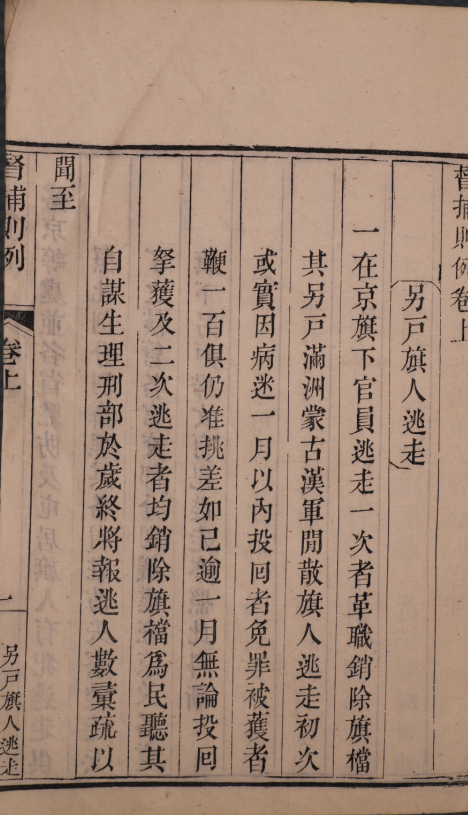 督捕則例卷上
另戸旗人逃走
一在京旗下官員逃走一次者革職銷除旗檔
其另戸滿洲蒙古漢軍閒散旗人逃走初次
或實因病迷一月以內投回者免罪被獲者
鞭一百俱仍准挑差如已逾一月無論投回
拏獲及二次逃走者均銷除旗檔為民聽其
自謀生理刑部於歲終將報逃人數彙疏以
聞至
督捕則例
卷上
一
另戸旗人逃走